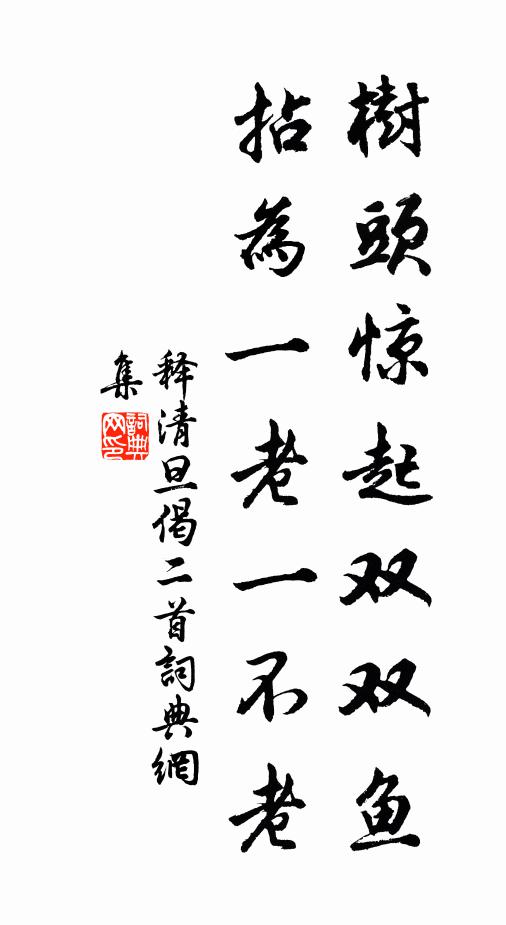 樹頭惊起双双鱼
拈為一老一不老
释清旦偈二首詞典網
集
詞典
网印